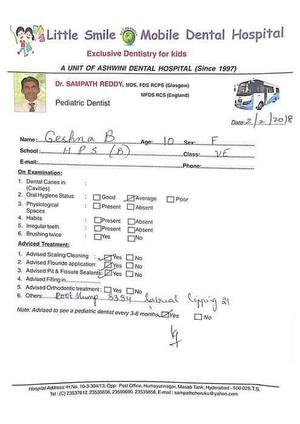 Little Smile Mobile Dental Hospital
Exclusive Dentistry for kids
A UNIT OF ASHWINI DENTAL HOSPITAL (Since 1997)
Dr. SAMPATH REDDY, MDS, FDS RCPS (Glasgow)
MFDS RCS (England)
Pediatric Dentist
Date: 2/2/2018
Name: Geshna B Age: 10 Sex: F
School: HPS (R) Class:
E-mail: Phone:
On Examination:
1. Dental Caries in (Cavities)
2. Oral Hygiene Status Good Average Poor
3. Physiological Spaces Present Absent
4. Habits Present Absent
5. Irregular teeth Present Absent
6. Brushing twice Yes No
Adviced Treatment:
1. Advised Scaling/Cleaning Yes No
2. Advised Flouride application: Yes No
3. Advised Pit & Fissure Sealants Yes No
4. Advised Filling in
5. Advised Orthodontic treatment: Yes No
6. Others: Root stump
Note: Advised to see a pediatric dentist every 3-6 months Yes No
Hospital Address: H.No. 10-3-304/13, Opp. Post Office, Humayunnagar, Masab Tank, Hyderabad - 500 028, T.S.
Tel: (C) 23537612, 23535656, 23590690, 23535858, E-mail: sampathcheruku@yahoo.com